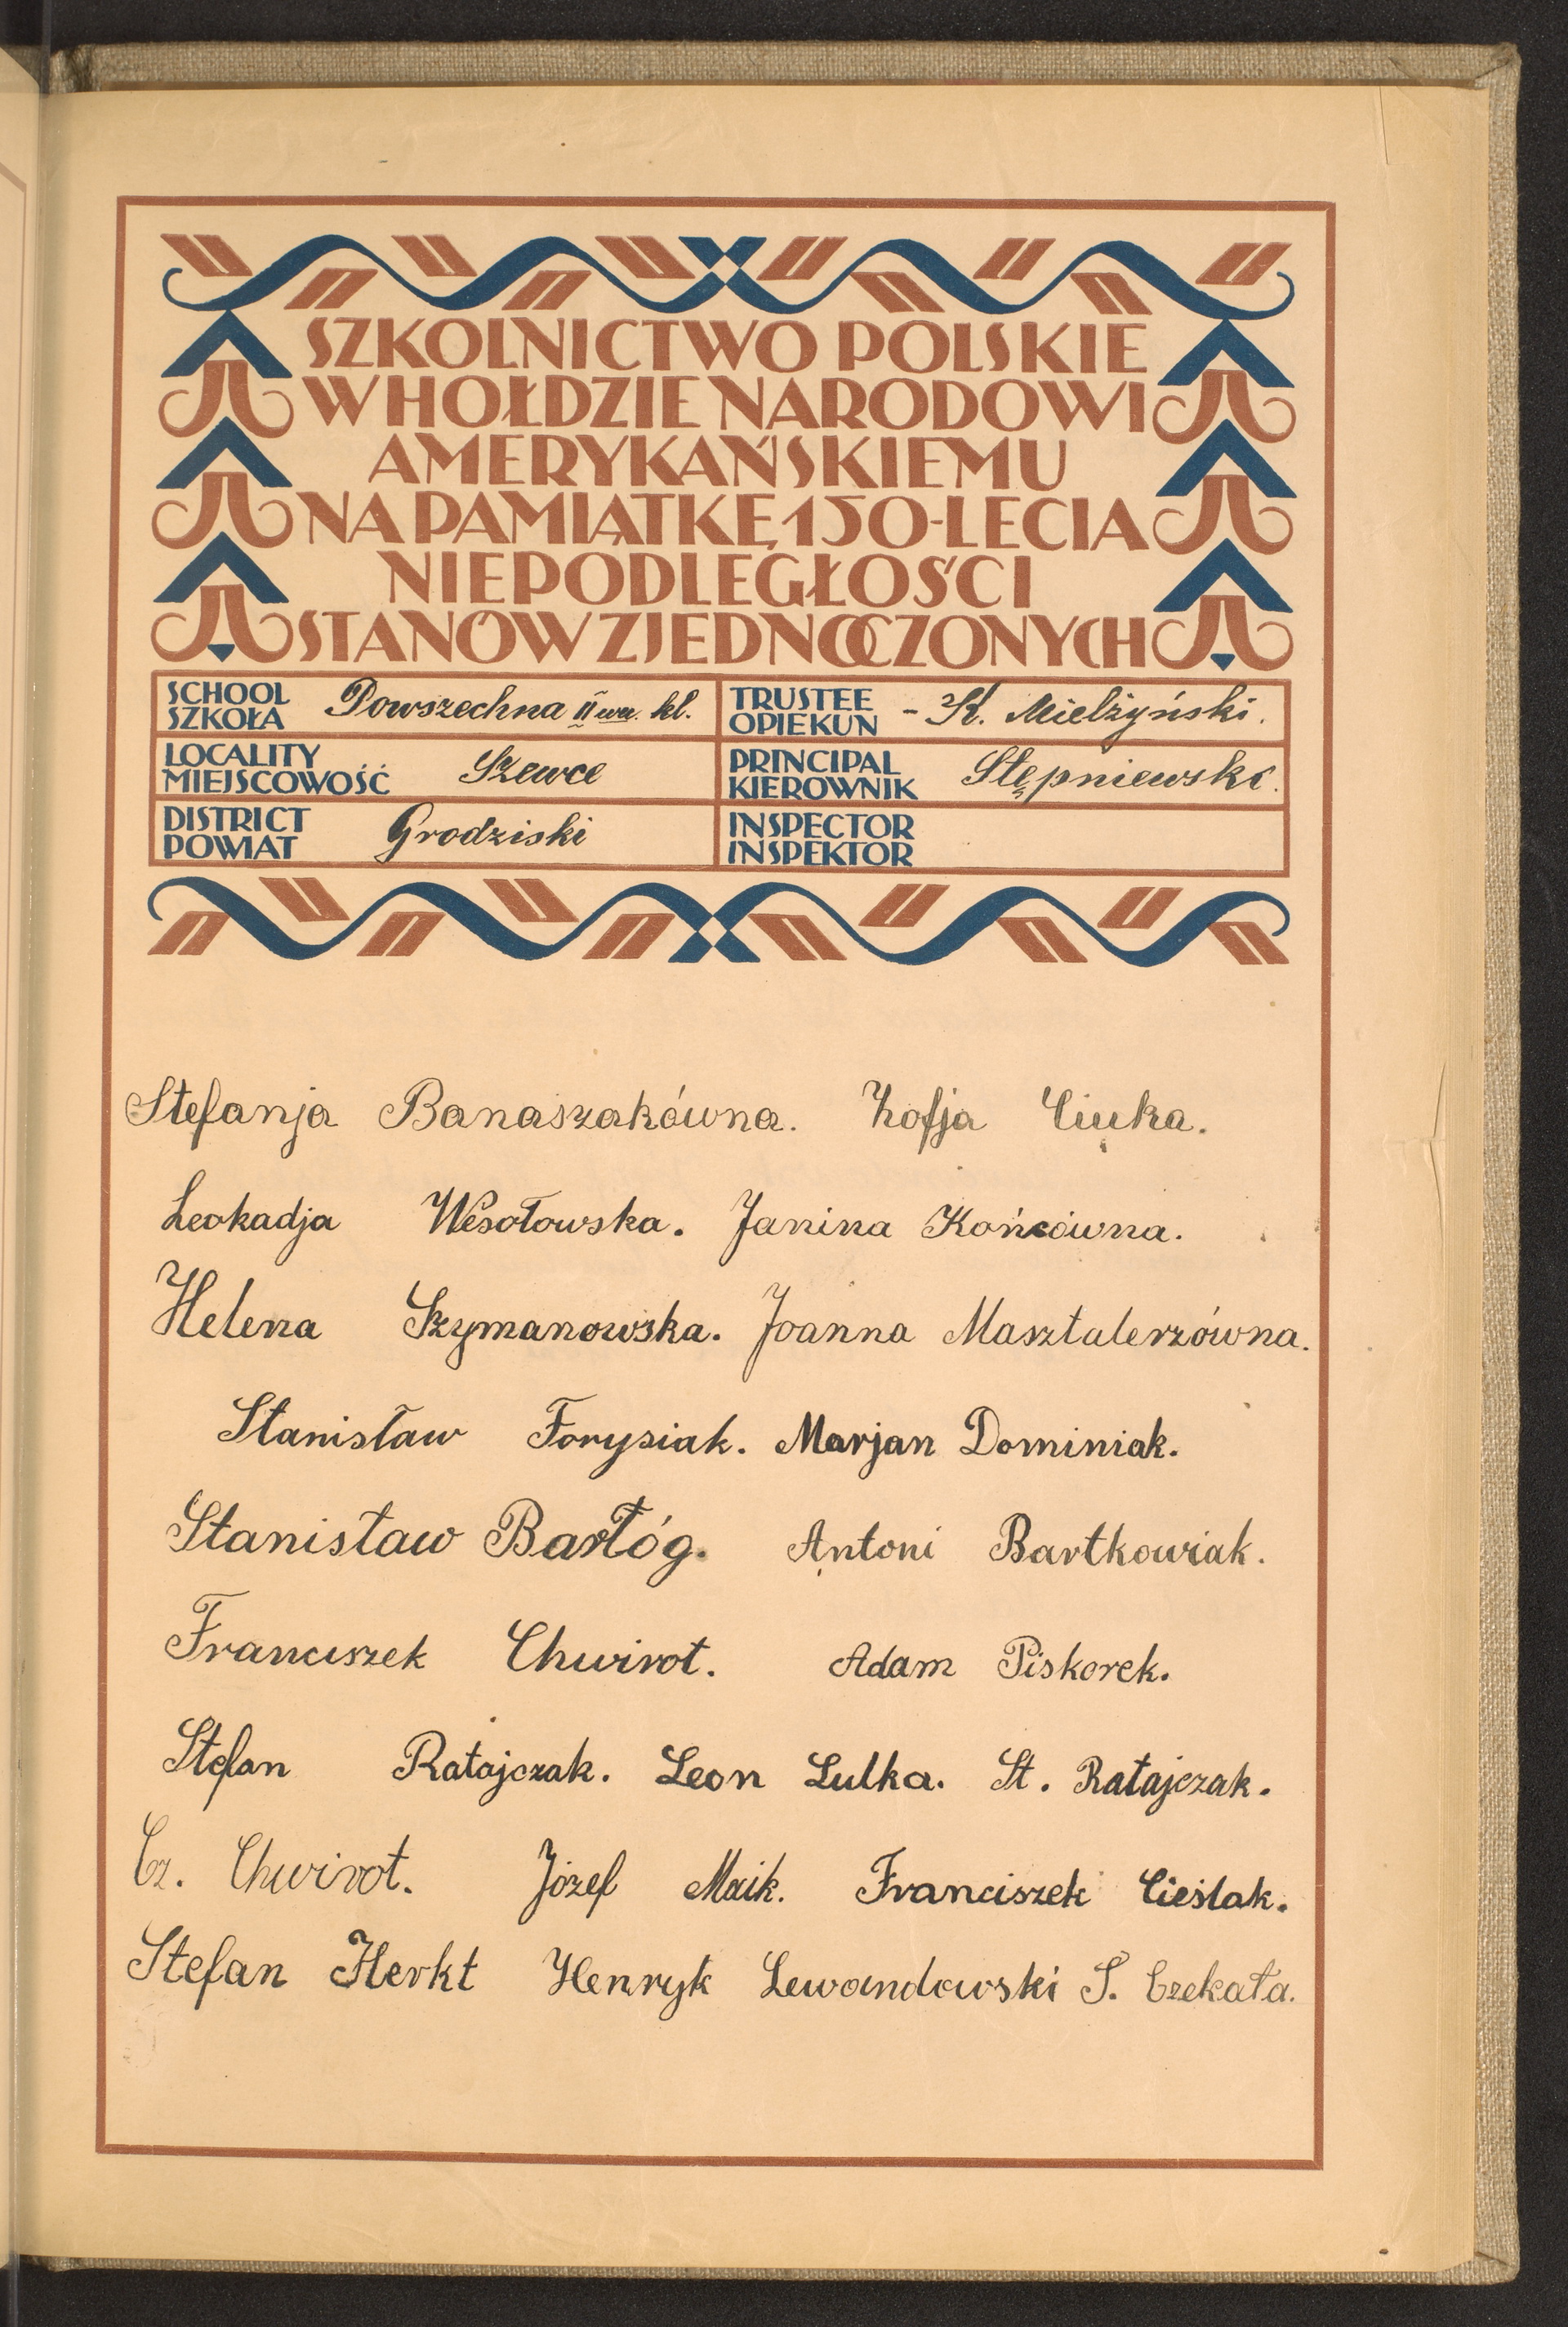 SZKOLNICTWO POLSKIE
W HOŁDZIE NARODOWI
AMERYKAŃSKIEMU
NA PAMIĄTKĘ 150-LECIA
NIEPODLEGŁOŚCI
STANÓW ZJEDNOCZONYCH
SCHOOL
SZKOŁA Powszechna II kl.
TRUSTEE
OPIEKUN - K. Mielżyński.
LOCALITY
MIEJSCOWOŚĆ Szewce
PRINCIPAL
KIEROWNIK Stępniewski.
DISTRICT
POWIAT Grodziski
INSPECTOR
INSPEKTOR
Stefanja Banaszakówna. Zofja Ciuka.
Leokadja Wesołowska. Janina Końcówna.
Helena Szymanowska. Joanna Masztalerzówna.
Stanisław Forysiak. Marjan Dominiak.
Stanisław Barłóg. Antoni Bartkowiak.
Franciszek Chwirot. Adam Piskorek.
Stefan Ratajczak. Leon Lulka. St. Ratajczak.
Cz. Chwirot. Józef Maik. Franciszek Cieślak.
Stefan Herkt Henryk Lewandowski S. Czekała.